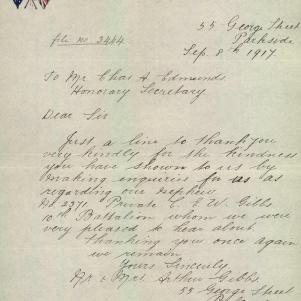 55 George Street
Parkside
file no. 3444
Sep. 8th 1917.
To Mr Chas A. Edmunds
Honorary Secretary
Dear Sir
Just a line to thank you
very kindly for the kindness
you have shown to us by
making enquiries for us as
regarding our Nephew
No 2371 Private L. E. W. Gibbs
10th Battalion whom we were
very pleased to hear about
Thanking you once again
we remain
Yours Sincerely
Mr & Mrs Arthur Gibbs
55 George Street